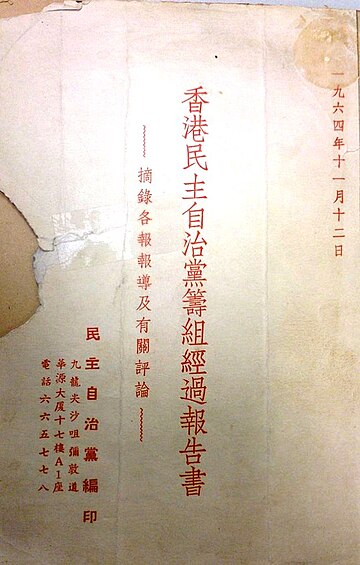 一九六四年十一月十二日
香港民主自治黨籌組經過報告書
摘錄各報報導及有關評論
民主自治黨編印
九龍尖沙咀彌敦道
華源大厦十七樓A1座
電話六六五七七八